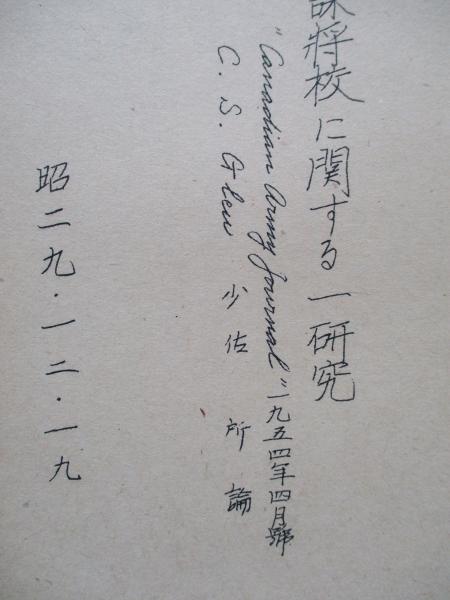 将校に関する一研究
"Canadian Army Journal" 一九五四年四月號
C. S. Glen 少佐 所論
昭二九・一二・一九